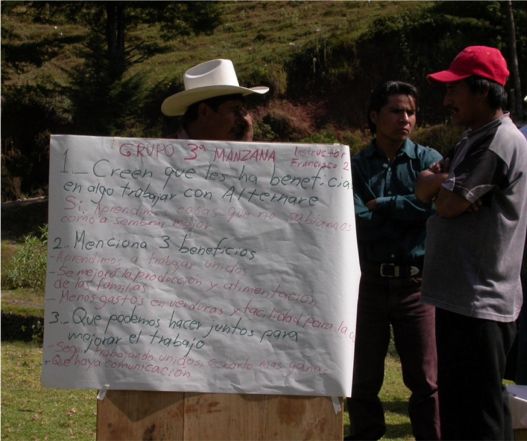 GRUPO 3ª MANZANA Instructor
Francisco Z
1._ Creen que les ha benefi-cia
en algo trabajar con Alternare
Si, Aprendimos cosas que no sabiamos
como a sembrar mejor
2._ Menciona 3 beneficios
-Aprendimos a trabajar unidos
-Se mejoró la producción y alimentación
de las familias
-Menos gastos en verduras y facilidad para la
3._ Que podemos hacer juntos para
mejorar el trabajo
-Seguir trabajando unidos, echarle mas ganas
-Que haya comunicación